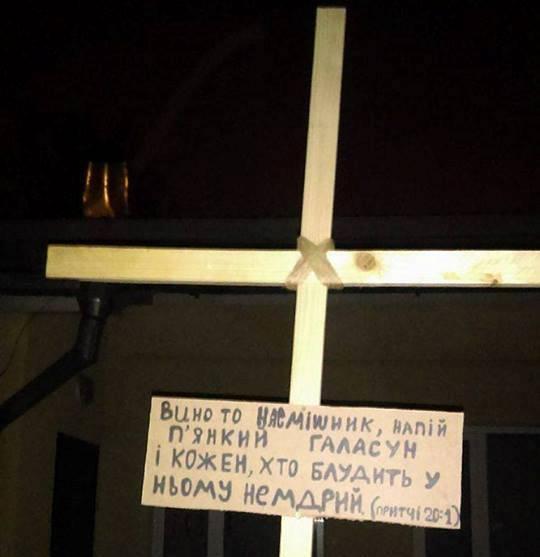 Вино то насмішник, напій
п'янкий галасун
і кожен, хто блудить у
ньому немдрий. (притчі 20:1)